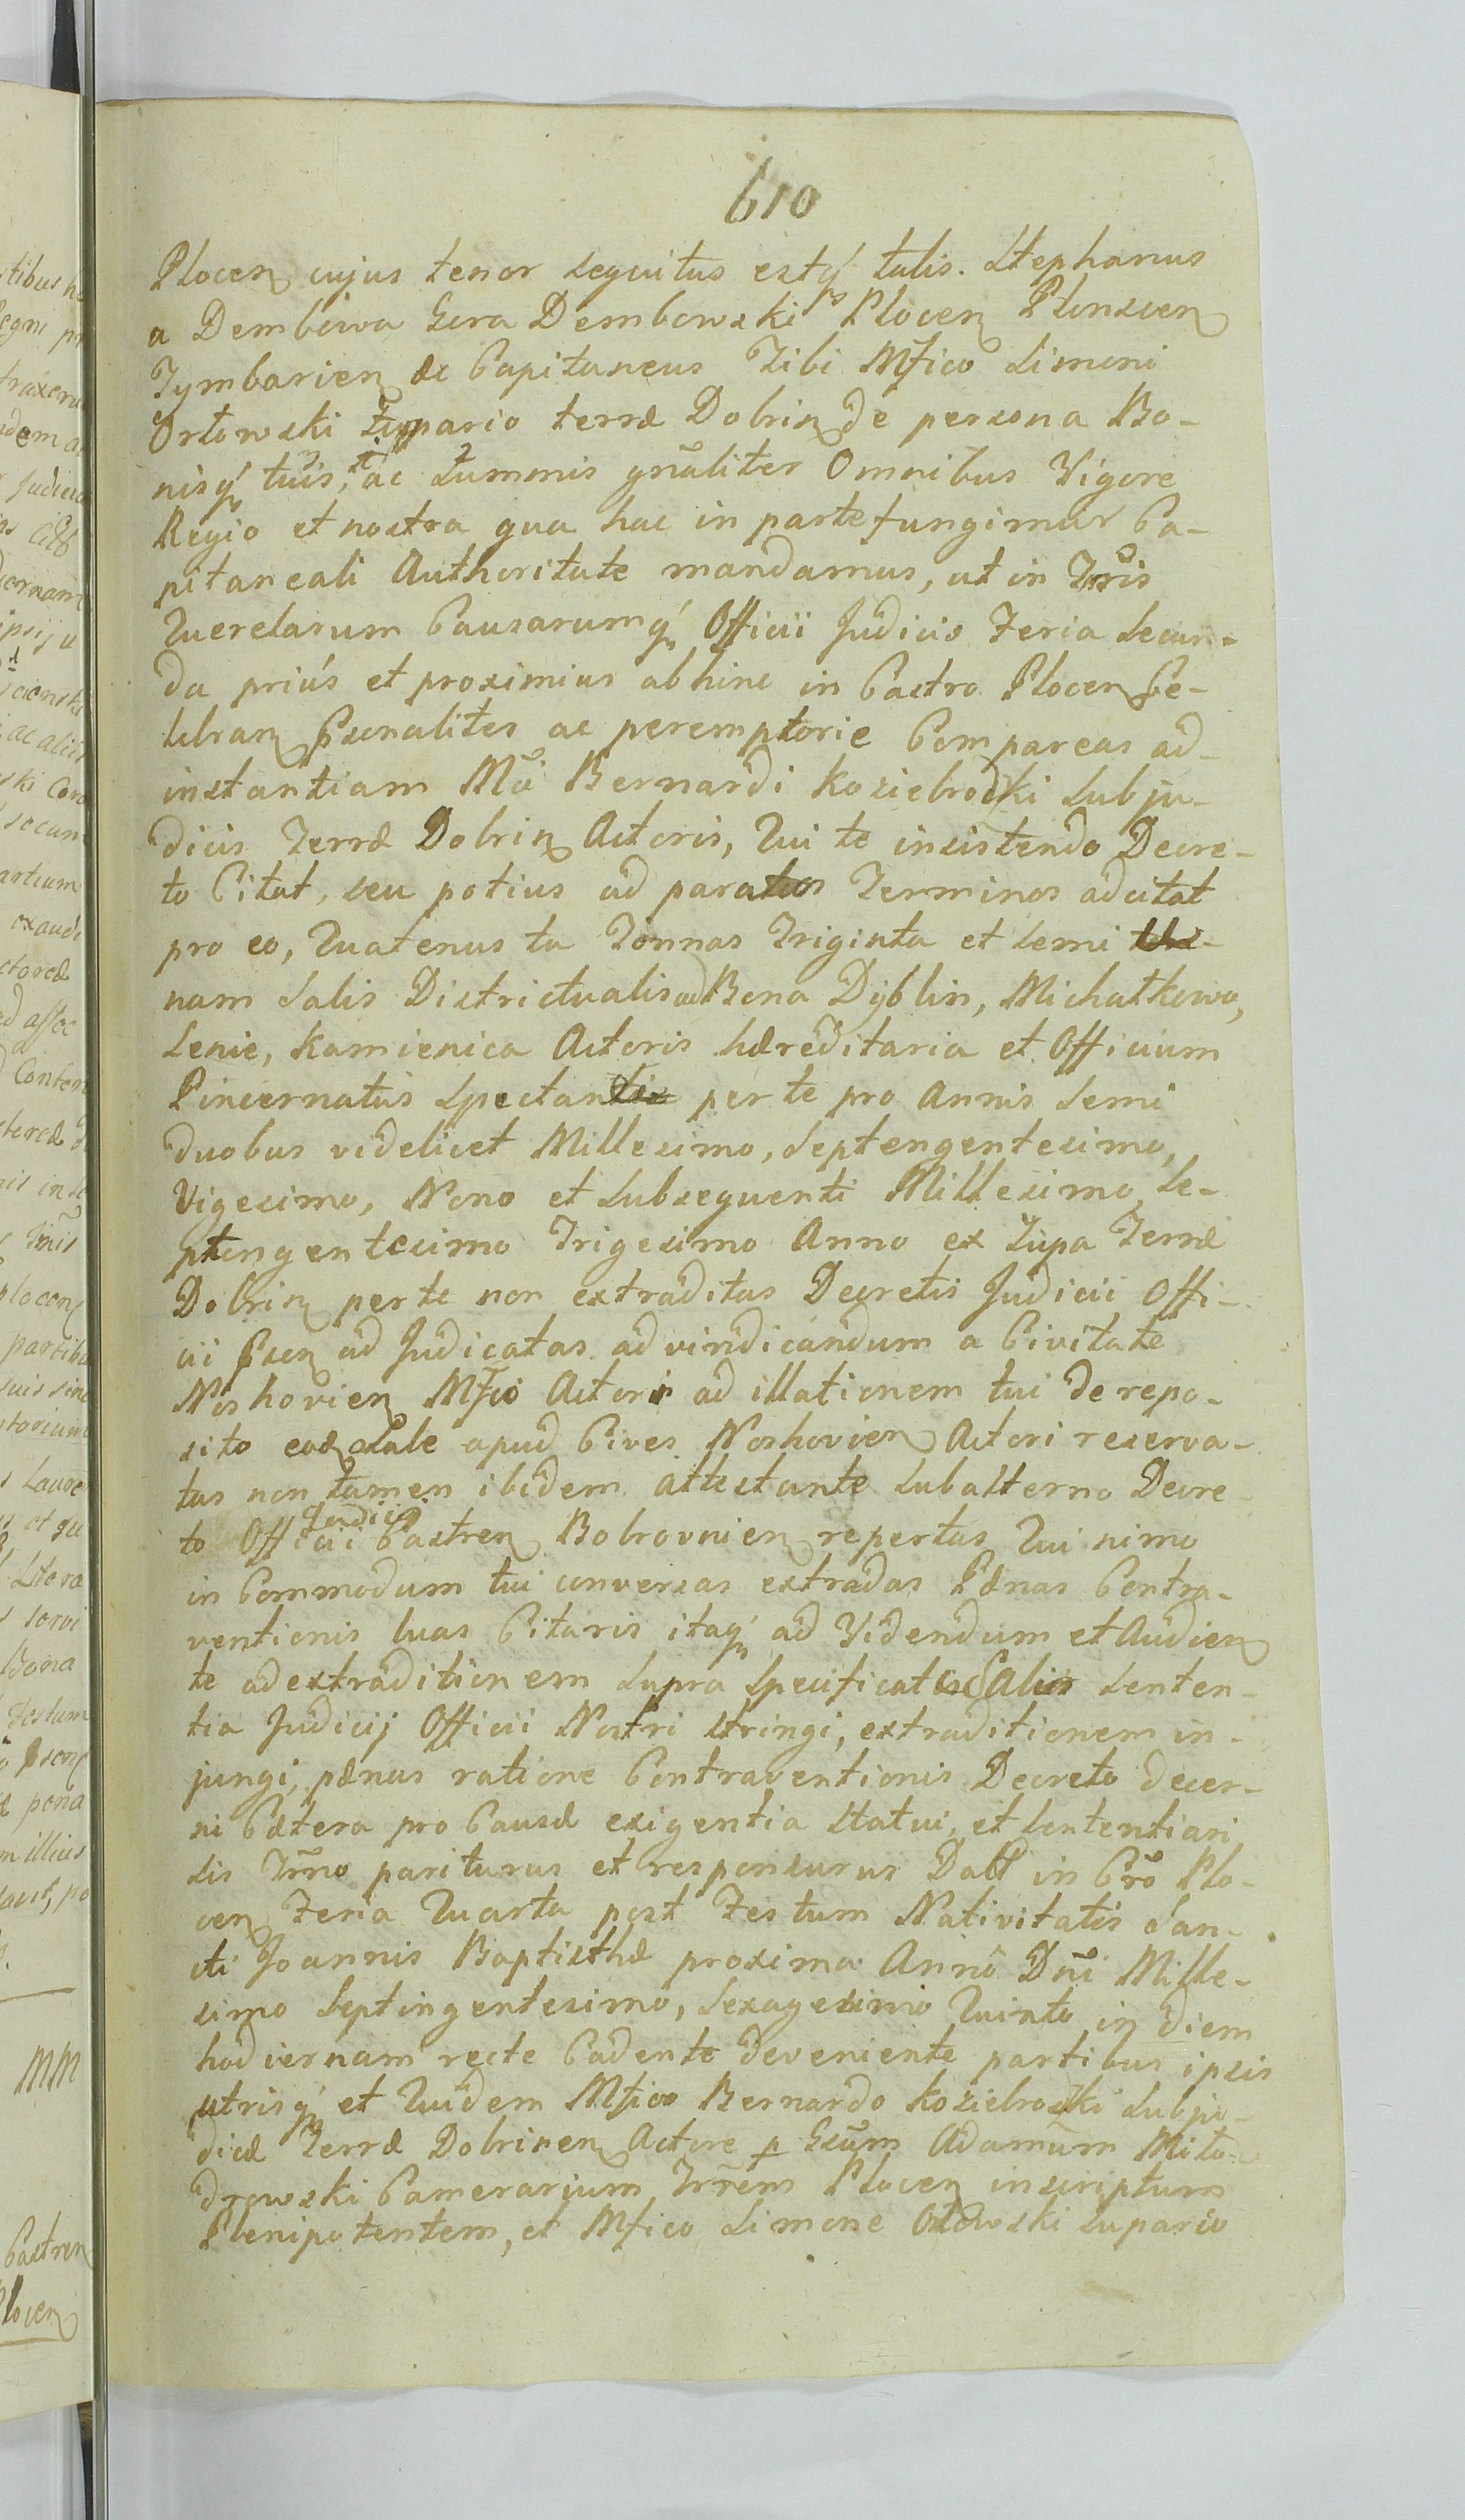 610
Plocen cujus tenor sequitus estq́ talis. Stephanus
a Dembowa Gora Dembowski Plocen Plonscen
Tymbarien &c Capitaneus Tibi Mfico Simoni
Orłowski Zupario terræ Dobrin de persona Bo-
nisq́ tuis, et ac Summis gn̄aliter Omnibus Vigore
Regio et nostra qua hac in parte fungimur Ca-
pitaneali Authoritate mandamus, ut in Tr̄is
Querelarum Causarumq́ Officii Judicio Feria Secun-
da prius et proximius abhinc in Castro Plocen Ce-
lebran Psonalites ac peremptorie Compareas ad
instantiam Mci Bernardi Koziebrodzki Subju-
dicis Terræ Dobrin Actoris, Qui te insistendo Decre-
to Citat, seu potius ad paratos Terminos adcitat
pro eo, Quatenus tu Tonnas Triginta et Semi
nam Salis Districtualis ad Bona Dyblin, Michałkowo,
Lenie, Kamienica Actoris hæreditaria et Officium
Pincernatus Spectan per te pro Annis Semi
duobus videlicet Millesimo, Septengentesimo,
Vigesimo, Nono et Subsequenti Millesimo Se-
ptengentesimo Trigesimo Anno ex Zupa Terræ
Dobrin per te non extraditas Decretis Judicii Offi-
cii Psen ad Judicatas ad vindicandum a Civitate
Noskovien Mfco Actori ad illationem tui de repo-
sito eod Sale apud Cives Noskovien Actori reserva-
tas non tamen ibidem attestante Subalterno Decre-
to Officii Judicii Castren Bobrovnien repertas Qui nimo
in Commodum tui conversas extradas Pænas Contra-
ventionis luas Citaris itaq́ ad Videndum et Audien
te ad extraditionem Supra Specificat Salis Senten-
tia Judicij Officii Nostri stringi, extraditionem in-
jungi, pænas ratione Contraventionis Decreto decer-
ni Cætera pro Causæ exigentia Statui, et Sententiari
sis Tr̄no pariturus et responsurus Datt in Cr̄o Plo-
cen Feria Quarta post Festum Nativitatis San-
cti Joannis Baptisthæ proxima Anno Dn̄i Mille-
simo Septingentesimo, Sexagesimo Quinto in diem
hodiernam recte Cadente deveniente partibus ipsis
utrisq́ et Quidem Mfico Bernardo Koziebrodzki Subju-
dice Terræ Dobrinen Actore p Gsum Adamum Miło-
drowski Camerarium Trrem Plocen inscriptum
Plenipotentem, et Mfico Simone Orłowski Supario